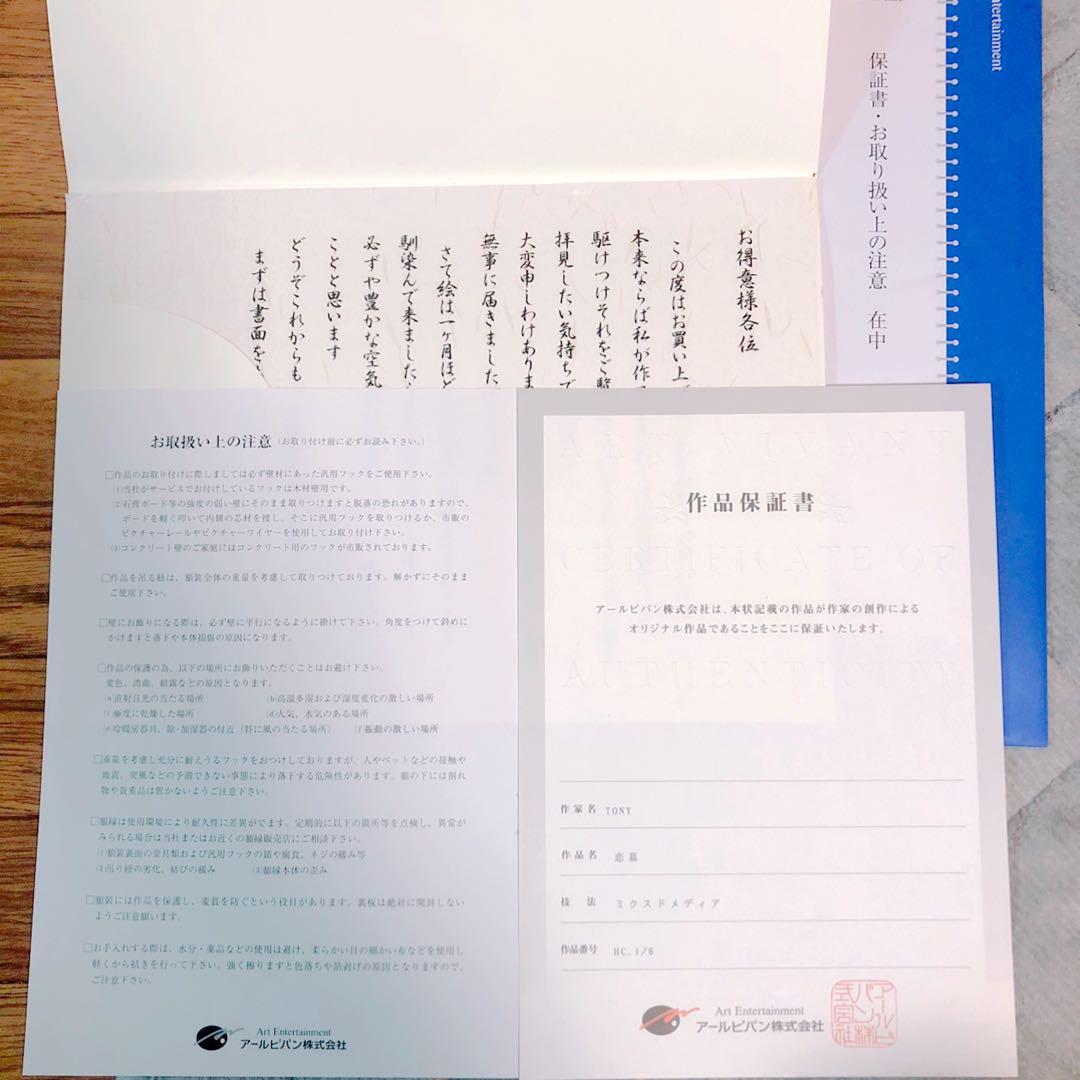 ntertainment
保証書・お取り扱い上の注意 在中
お得意様各位
この度はお買い上
本来ならば私が作
駆けつけそれをご
拝見したい気持ちで
大変申しわけありま
無事に届きました
さて絵は一ヶ月ほど
馴染んで来ました
必ずや豊かな空気
ことと思います
どうぞこれからも
まずは書面を
お取扱い上の注意（お取り付け前に必ずお読み下さい。）
□作品のお取り付けに際しましては必ず壁材にあった汎用フックをご使用下さい。
(1)当社がサービスでお付けしているフックは木材壁用です。
(2)石膏ボード等の強度の弱い壁にそのまま取りつけますと脱落の恐れがありますので、
ボードを軽く叩いて内側の芯材を捜し、そこに汎用フックを取りつけるか、市販の
ピクチャーレールやピクチャーワイヤーを使用してお取り付け下さい。
(3)コンクリート壁のご家庭にはコンクリート用のフックが市販されております。
□作品を吊る紐は、額装全体の重量を考慮して取りつけております。解かずにそのまま
ご使用下さい。
□壁にお飾りになる際は、必ず壁に平行になるように掛けて下さい。角度をつけて斜めに
かけますと落下や本体損傷の原因になります。
□作品の保護の為、以下の場所にお飾りいただくことはお避け下さい。
変色、湾曲、結露などの原因となります。
(a)直射日光の当たる場所 (b)高温多湿および湿度変化の激しい場所
(c)極度に乾燥した場所 (d)火気、水気のある場所
(e)冷暖房器具、除・加湿器の付近（特に風の当たる場所） (f)振動の激しい場所
□重量を考慮し充分に耐えうるフックをおつけしておりますが、人やペットなどの接触や
地震、突風などの予測できない事態により落下する危険性があります。額の下には割れ
物や貴重品は置かないようご注意下さい。
□額縁は使用環境により耐久性に差異がでます。定期的に以下の箇所等を点検し、異常が
みられる場合は当社またはお近くの額縁販売店にご相談下さい。
(1)額装裏面の金具類および汎用フックの錆や腐食、ネジの緩み等
(2)吊り紐の劣化、結びの緩み (3)額縁本体の歪み
□額装には作品を保護し、変質を防ぐという役目があります。裏板は絶対に開封しない
ようご注意願います。
□お手入れする際は、水分・薬品などの使用は避け、柔らかい目の細かい布などを使用し
軽くから拭きを行って下さい。強く擦りますと色落ちや箔剥げの原因となりますので、
ご注意下さい。
Art Entertainment
アールビバン株式会社
ART VIVANT
作品保証書
CERTIFICATE OF
アールビバン株式会社は、本状記載の作品が作家の創作による
オリジナル作品であることをここに保証いたします。
AUTHENTICITY
作家名 TONY
作品名 恋慕
技法 ミクスドメディア
作品番号 HC.1/6
Art Entertainment
アールビバン株式会社
アールビバン株式会社